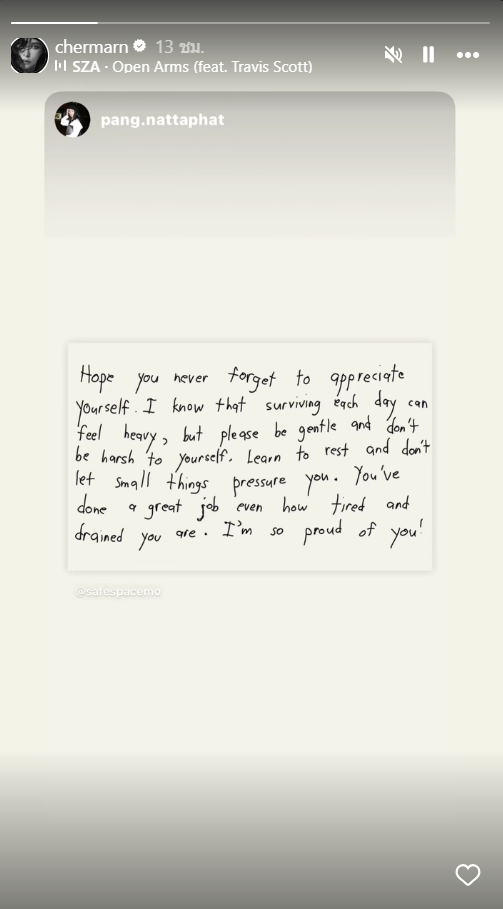 chermarn 13 ชม.
SZA · Open Arms (feat. Travis Scott)
pang.nattaphat
Hope you never forget to appreciate
yourself. I know that surviving each day can
feel heavy, but please be gentle and don't
be harsh to yourself. Learn to rest and don't
let small things pressure you. You've
done a great job even how tired and
drained you are. I'm so proud of you!
@safespacemo